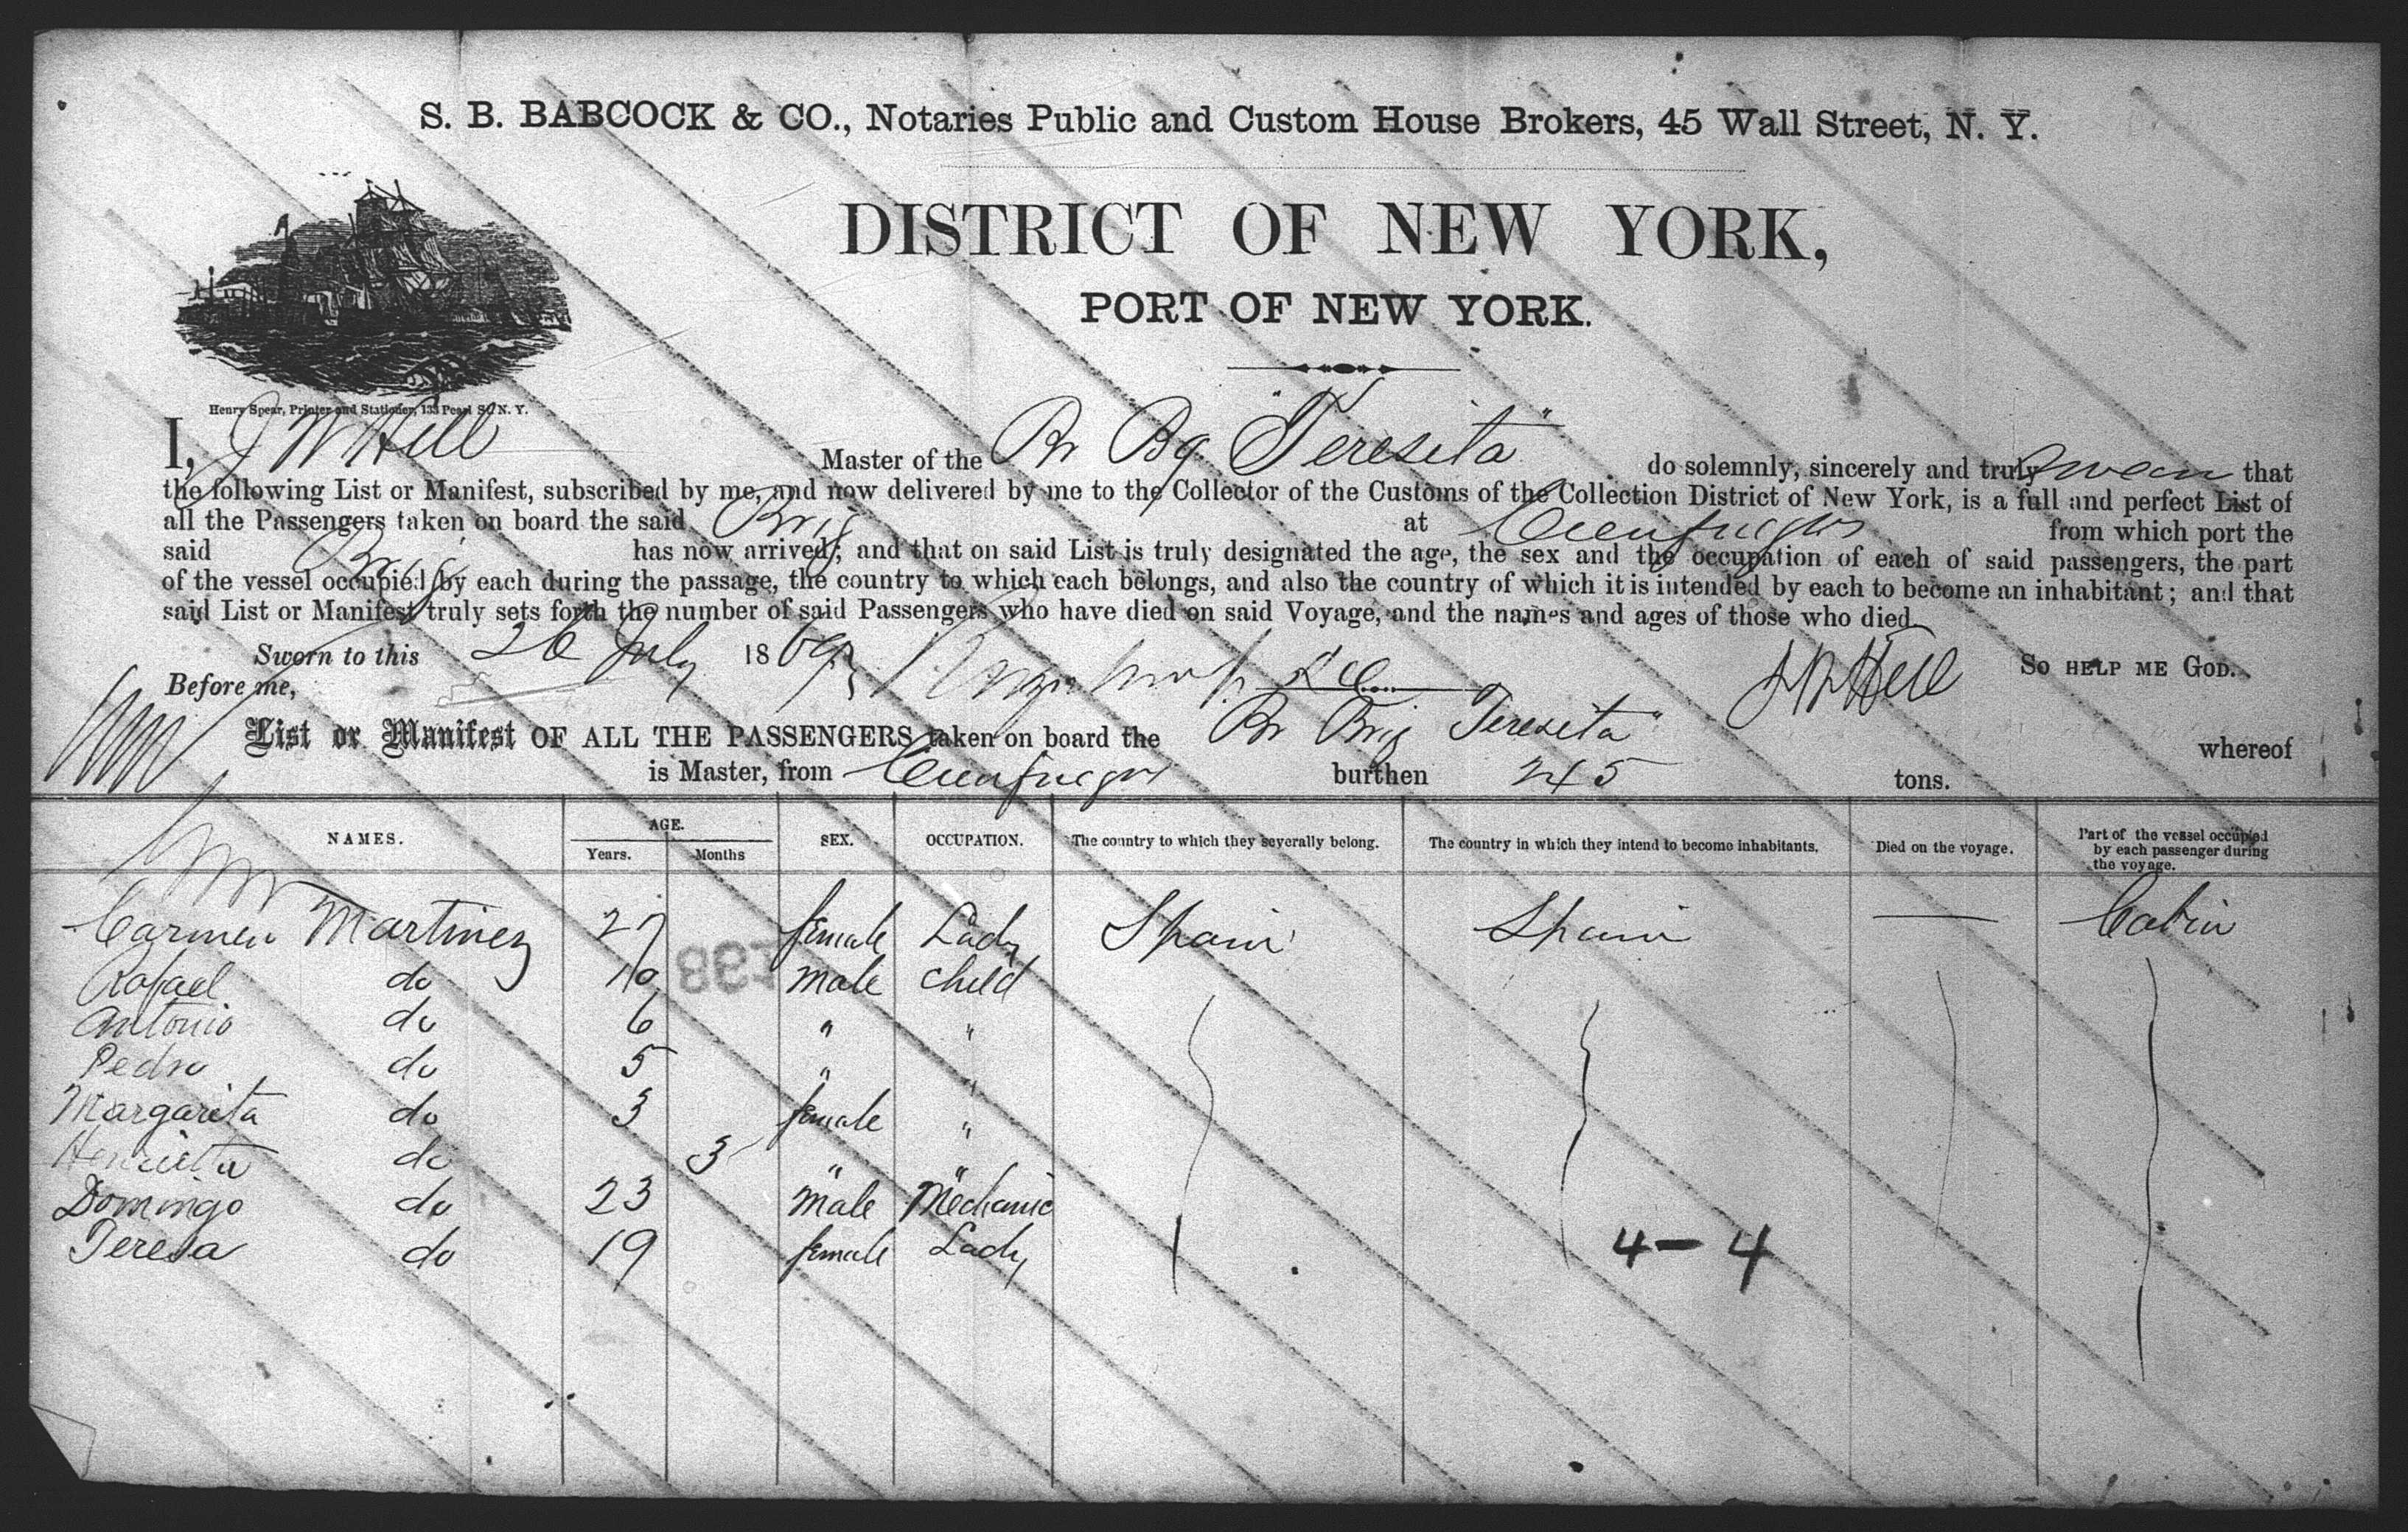 S. B. BABCOCK & CO., Notaries Public and Custom House Brokers, 45 Wall Street, N. Y.
DISTRICT OF NEW YORK,
PORT OF NEW YORK.
Henry Spear, Printer and Stationer, 133 Pearl St., N. Y.
I, J W Hill Master of the Br Bg. "Teresita" do solemnly, sincerely and truly swear that
the following List or Manifest, subscribed by me, and now delivered by me to the Collector of the Customs of the Collection District of New York, is a full and perfect List of
all the Passengers taken on board the said Brig at Cienfuegos from which port the
said Brig has now arrived; and that on said List is truly designated the age, the sex and the occupation of each of said passengers, the part
of the vessel occupied by each during the passage, the country to which each belongs, and also the country of which it is intended by each to become an inhabitant; and that
said List or Manifest truly sets forth the number of said Passengers who have died on said Voyage, and the names and ages of those who died.
Sworn to this 26 July 1869 J W Hill SO HELP ME GOD.
Before me,
List or Manifest OF ALL THE PASSENGERS taken on board the Br Brig Teresita" whereof
is Master, from Cienfuegos burthen 245 tons.
NAMES. AGE. Years. Months SEX. OCCUPATION. The country to which they severally belong. The country in which they intend to become inhabitants. Died on the voyage. Part of the vessel occupied by each passenger during the voyage.
Carmen Martinez 27 female Lady Spain Spain — Cabin
Rafael do 10 male child
Antonio do 6 " "
Pedro do 5 " "
Margarita do 3 female "
Henrieta do 3 " "
Domingo do 23 Male Mechanic
Teresa do 19 female Lady
4-4